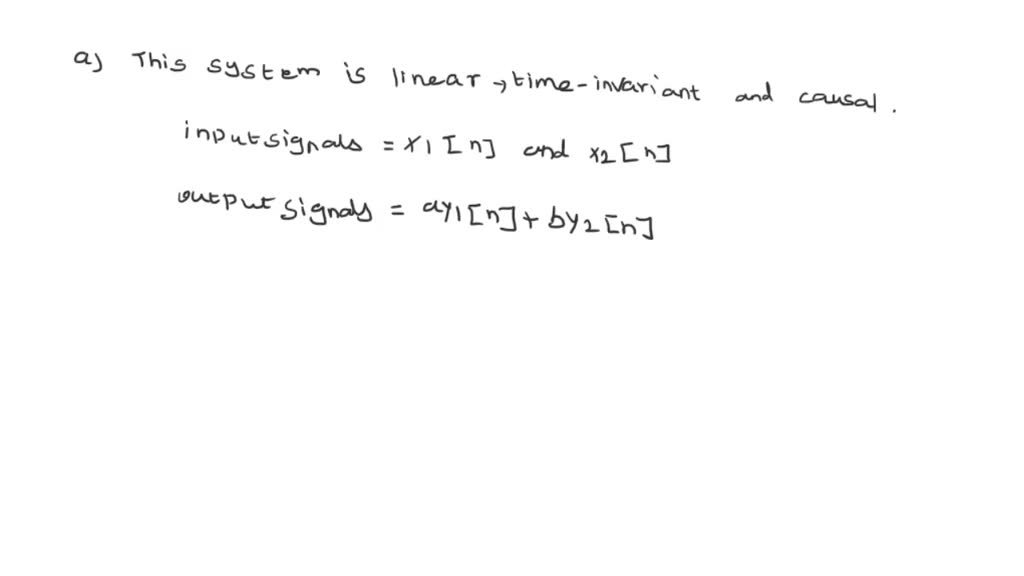 a) This system is linear, time-invariant and causal.
input signals = x1[n] and x2[n]
output signals = ay1[n] + by2[n]